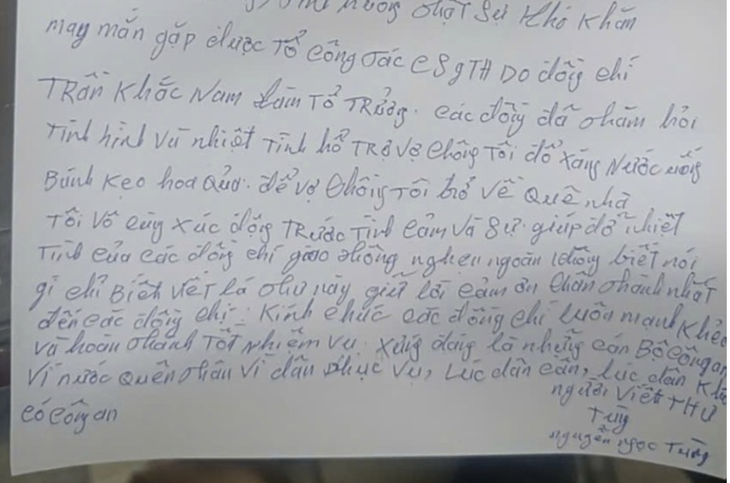 khó khăn
may mắn gặp được Tổ công tác CSGTH Do đồng chí
TRần Khắc Nam Làm Tổ TRưởng. các đồng đã thăm hỏi
Tình hình và nhiệt Tình hổ TRợ vợ chồng Tôi đổ xăng Nước uống
Bánh Kẹo hoa Quả. để vợ chồng Tôi trở về Quê nhà
Tôi vô cùng xúc động TRước Tình cảm và Sự giúp đỡ nhiệt
Tình của các đồng chí giao thông nghẹn ngoàn không biết nói
gì chỉ Biết viết lá thư này gửi lời cảm ơn chân thành nhất
đến các đồng chí. Kính chúc các đồng chí luôn mạnh khỏe
và hoàn thành Tốt nhiệm vụ. xứng đáng là những cán Bộ công an
vì nước Quên thân vì dân phục vụ, Lúc dân cần, lúc dân khó
có công an
người viết THƯ
Tùng
nguyễn ngọc Tùng